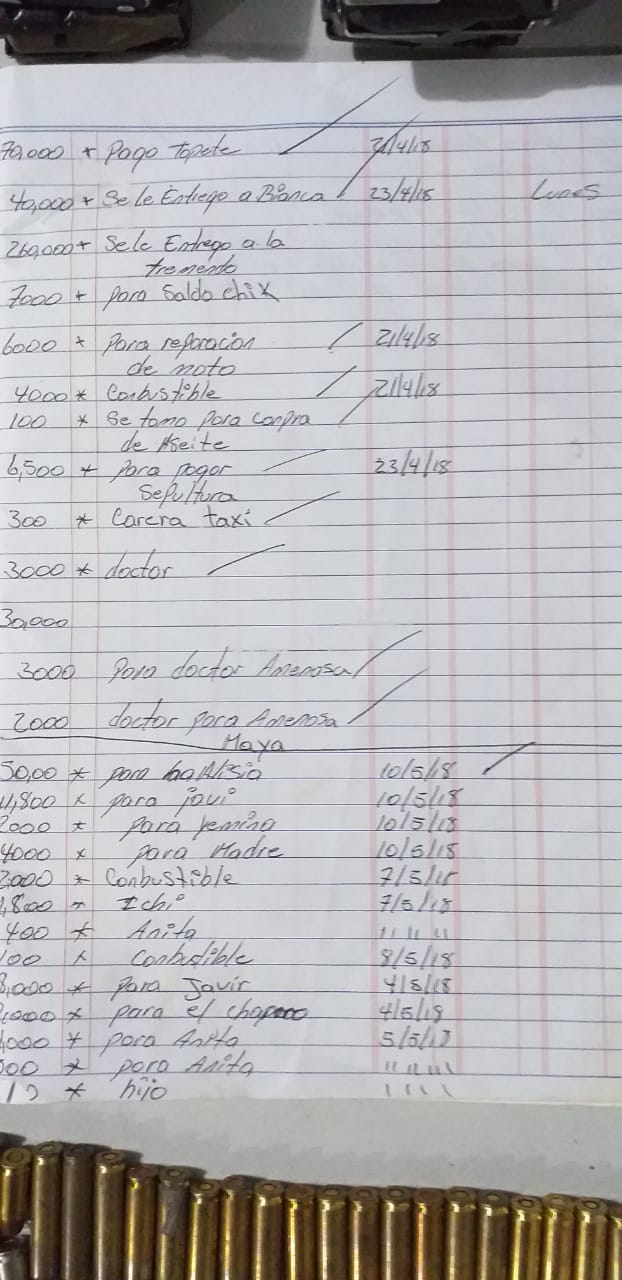 70,000 * Pago Topete 21/4/18
40,000 * Se le Entrego a Bianca 23/4/18 Lunes
260,000 * Se le Entrego a la
tremendo
7000 * para Saldo chix
6000 * Para reparacion 21/4/18
de moto
4000 * Conbustible 21/4/18
100 * Se tomo Para conpra
de Aseite
6,500 * Para pagar 23/4/18
Sepultura
300 * Carera taxi
3000 * doctor
30,000
3000 Para doctor Amenosa
2000 doctor para Amenosa
Maya
50,00 * para 10/5/18
,800 * para javi 10/5/18
2000 * Para Yemina 10/5/18
4000 * para Madre 10/5/18
2,000 * Conbustible 7/5/18
,800 * Ichi 7/5/18
400 * Anita " " "
100 * Conbustible 8/5/18
,000 * Para Javir 4/5/18
,000 * para el 4/5/18
,000 * para Anita 5/5/18
00 * para Anita " " "
* hijo " " "